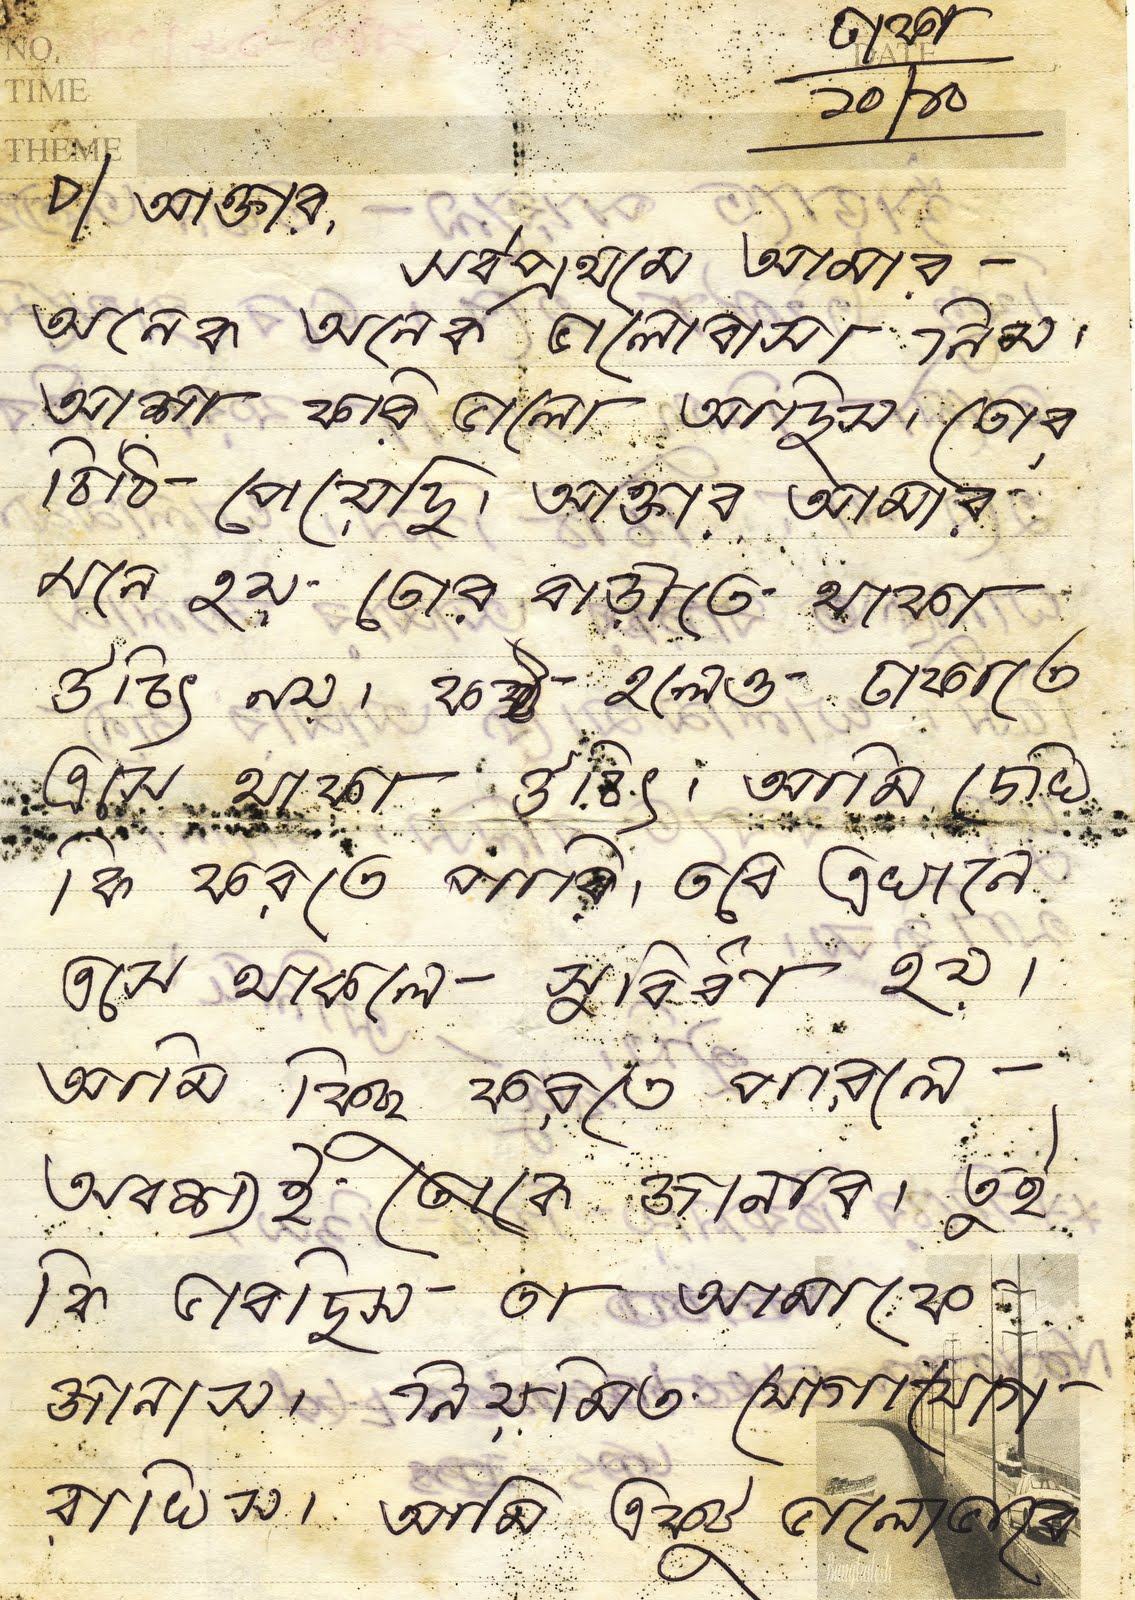 NO.
TIME
DATE
THEME
ঢাকা
১০/১০
D/ আক্তার,
সর্বপ্রথমে আমার -
অনেক অনেক ভালোবাসা নিস।
আশা করি ভালো আছিস। তোর
চিঠি পেয়েছি। আক্তার আমার
মনে হয় তোর বাড়ীতে থাকা
উচিৎ নয়। কষ্ট হলেও ঢাকাতে
এসে থাকা উচিৎ। আমি দেখি
কি করতে পারি, তবে এখানে
এসে থাকলে সুবির্ধা হয়।
আমি কিছু করতে পারলে -
অবশ্যই তোকে জানাব। তুই
কি ভাবছিস তা আমাকে
জানাস। নিয়মিত যোগাযোগ
রাখিস। আমি একটু ভালোভাবে
Bangladesh